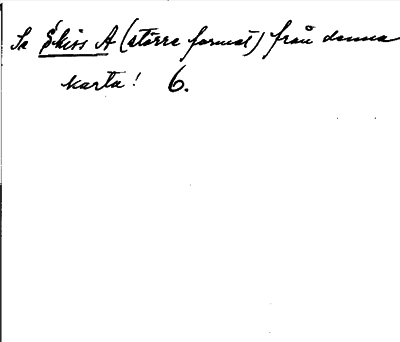 Se Skiss A (större format) från denna
karta! 6.